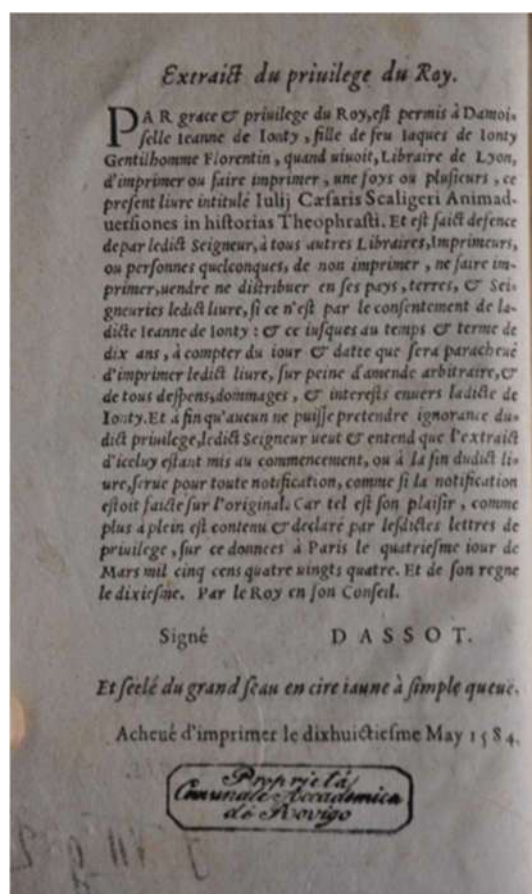 Extraict du priuilege du Roy.
PAR grace & priuilege du Roy, est permis à Damoi-
selle Ieanne de Ionty, fille de feu Iaques de Ionty
Gentilhomme Florentin, quand uiuoit, Libraire de Lyon,
d'imprimer ou faire imprimer, une foys ou plusieurs, ce
present liure intitulé Iulij Cæsaris Scaligeri Animad-
uersiones in historias Theophrasti. Et est faict defence
de par ledict Seigneur, à tous autres Libraires, Imprimeurs,
ou personnes quelconques, de non imprimer, ne faire im-
primer, uendre ne distribuer en ses pays, terres, & Sei-
gneuries ledict liure, si ce n'est par le consentement de la-
dicte Ieanne de Ionty : & ce iusques au temps & terme de
dix ans, à compter du iour & datte que sera paracheué
d'imprimer ledict liure, sur peine d'amende arbitraire, &
de tous despens, dommages, & interests enuers ladicte de
Ionty. Et à fin qu'aucun ne puisse pretendre ignorance du-
dict priuilege, ledict Seigneur ueut & entend que l'extraict
d'iceluy estant mis au commencement, ou à la fin dudict li-
ure, serue pour toute notification, comme si la notification
estoit faicte sur l'original. Car tel est son plaisir, comme
plus à plein est contenu & declaré par lesdictes lettres de
priuilege, sur ce donnees à Paris le quatriesme iour de
Mars mil cinq cens quatre uingts quatre. Et de son regne
le dixiesme. Par le Roy en son Conseil.
Signé DASSOT.
Et seelé du grand seau en cire iaune à simple queuë.
Acheué d'imprimer le dixhuictiesme May 1584.
Proprietá
Comunale Accademica
di Rovigo